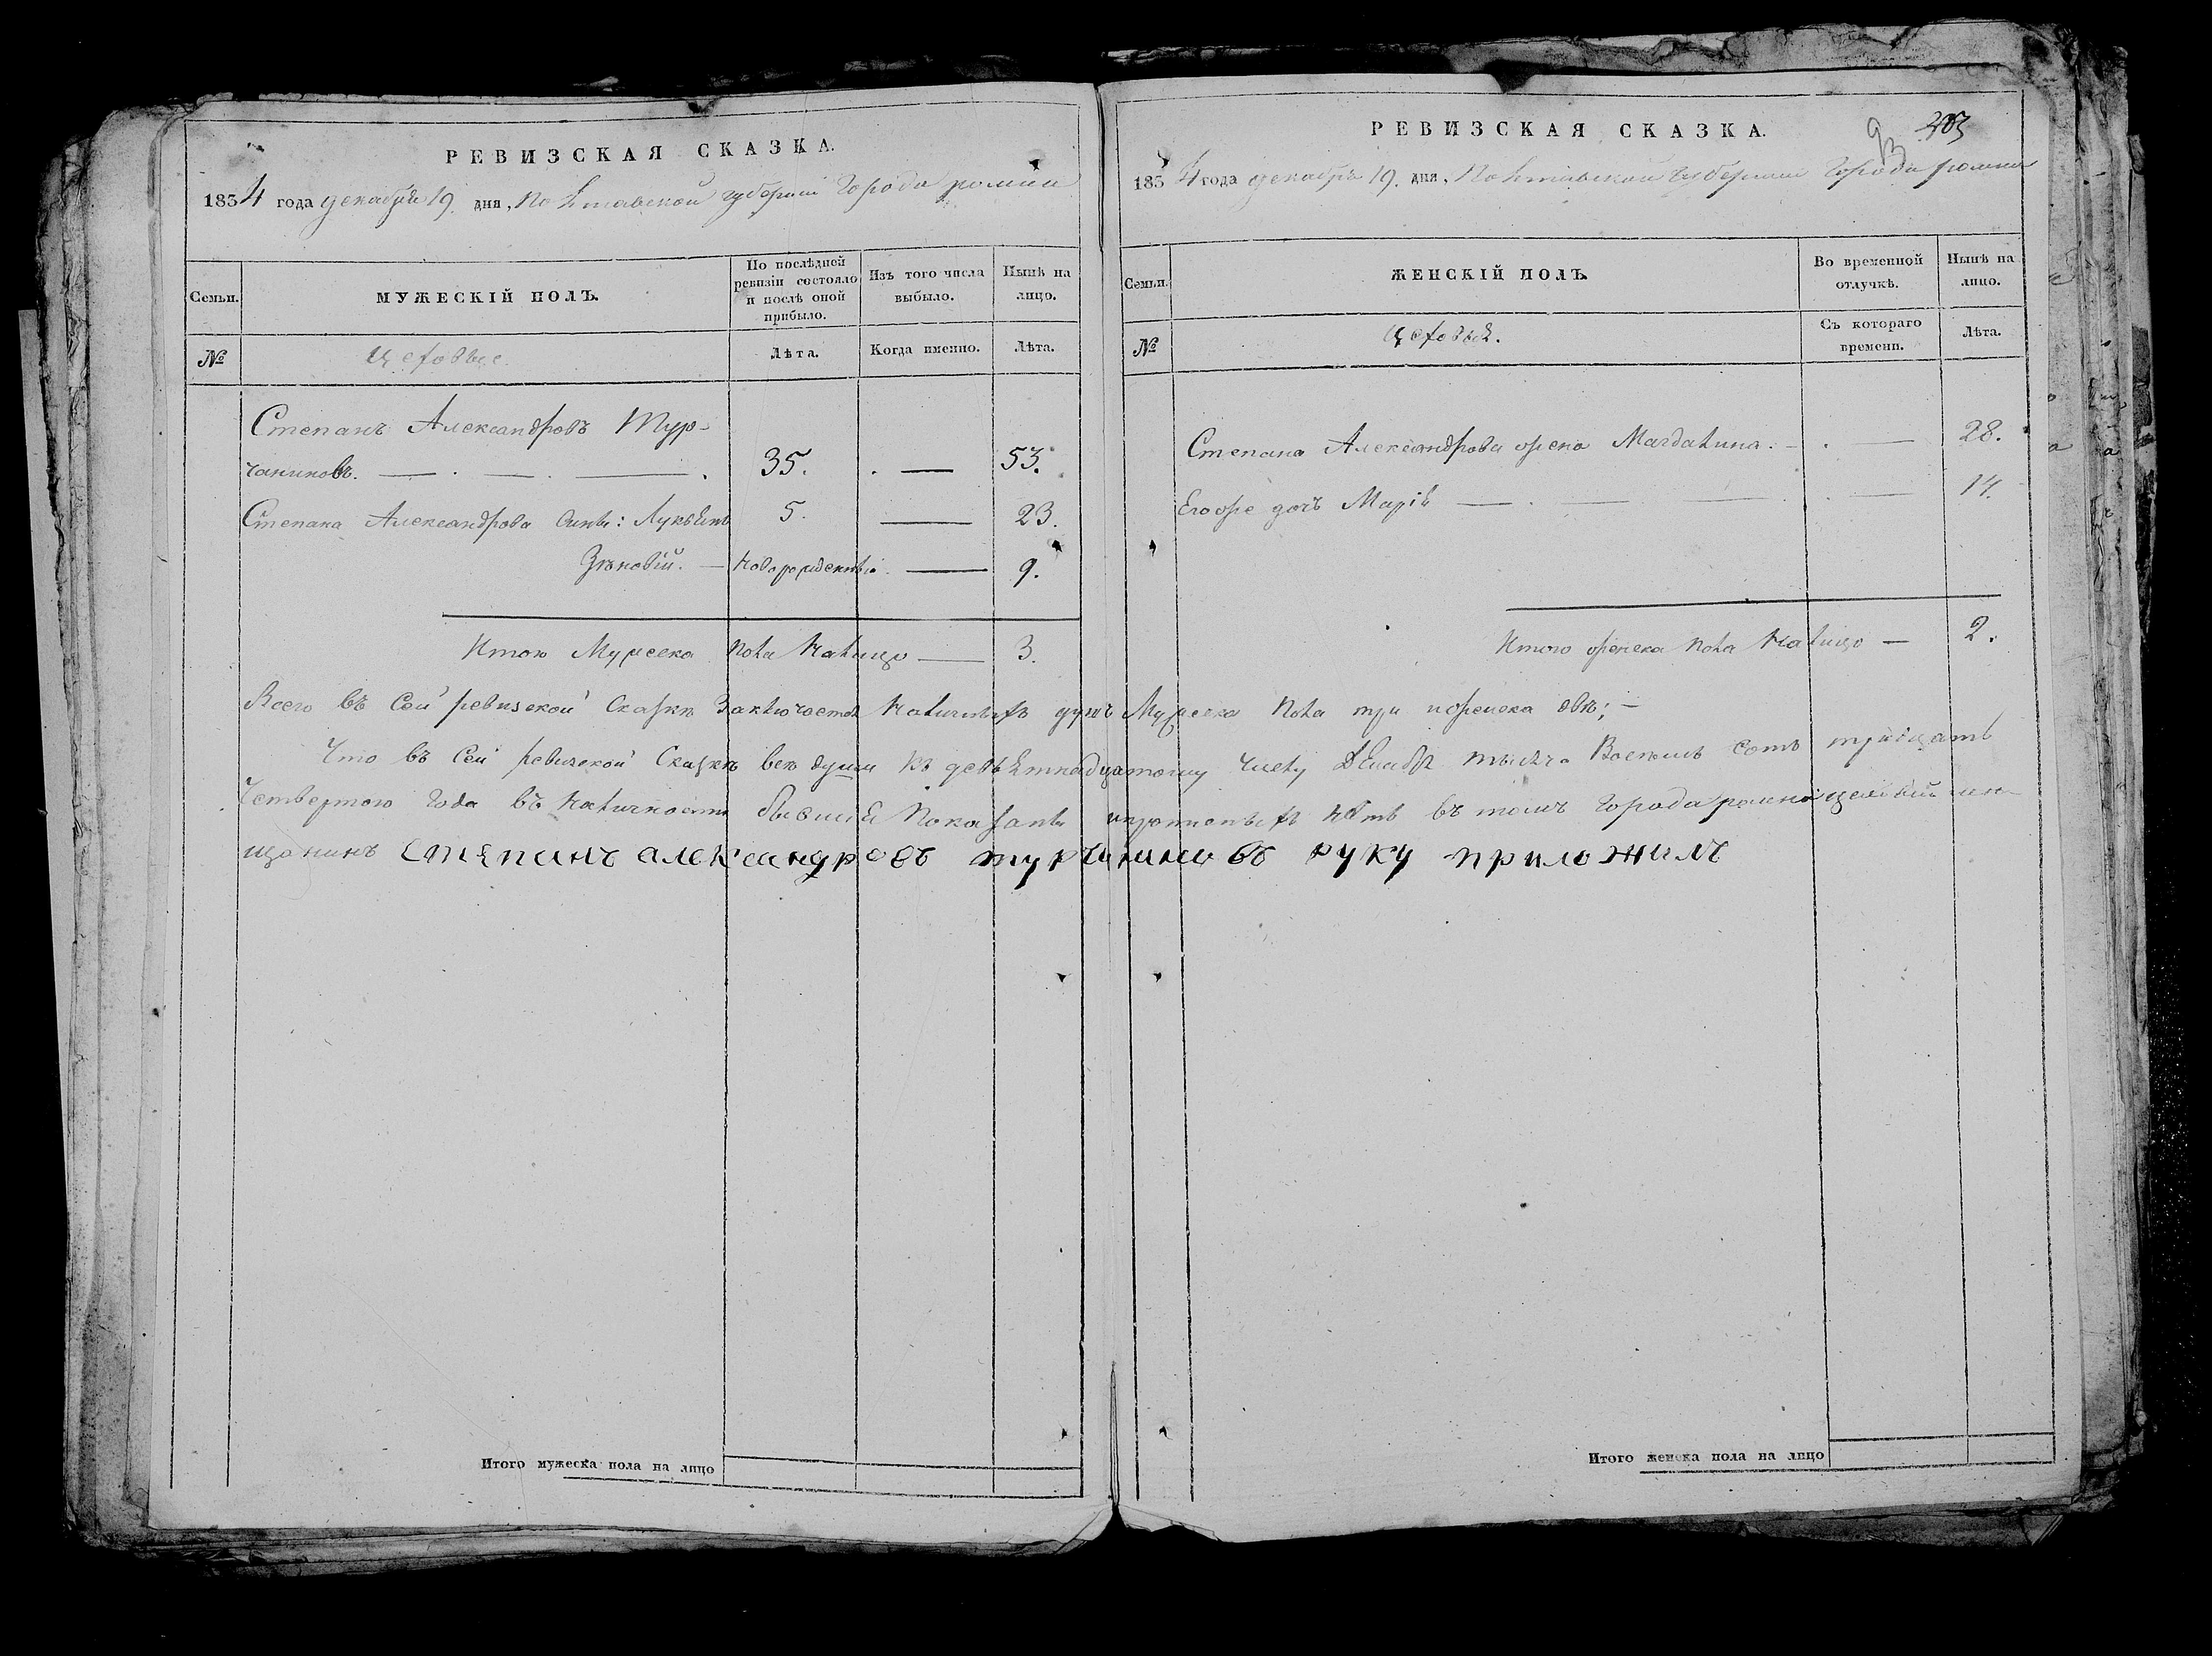 РЕВИЗСКАЯ СКАЗКА.
1834 года декабря 19. дня, Полтавской губернии Города ромна
Семьи.
МУЖЕСКІЙ ПОЛЪ.
По послѣдней ревизіи состояло и послѣ оной прибыло.
Изъ того числа выбыло.
Нынѣ на лицо.
№
Цеховые.
Лѣта.
Когда именно.
Лѣта.
Степанъ Александровъ Тур-
чаниновъ. 35. 53.
Степана Александрова сыны: Лукьянъ 5. 23.
Зѣновій. новорожденный 9.
Итого Мужеска пола налицо 3.
РЕВИЗСКАЯ СКАЗКА.
1834 года декабря 19. дня, Полтавской губернии Города ромна
Семьи.
ЖЕНСКІЙ ПОЛЪ.
Во временной отлучкѣ.
Нынѣ на лицо.
№
Цеховыя.
Съ котораго времени.
Лѣта.
Степана Александрова жена Магдалина. 28.
Егоже дочь Марія 14.
Итого женска пола налицо 2.
Всего въ сей ревизской Сказкѣ Заключается наличныхъ душъ Мужеска пола три и женска двѣ;
Что въ Сей ревизской Сказкѣ всѣ души къ девятнадцатому числу Декабря тысяча Восемь сотъ тридцать
Четвертого Года въ наличности бывшія Показаны и прописныхъ нѣтъ въ томъ Города ромна цеховый мѣ-
щанинъ степанъ александровъ турчаниновъ руку приложилъ
Итого мужеска пола на лицо
Итого женска пола на лицо